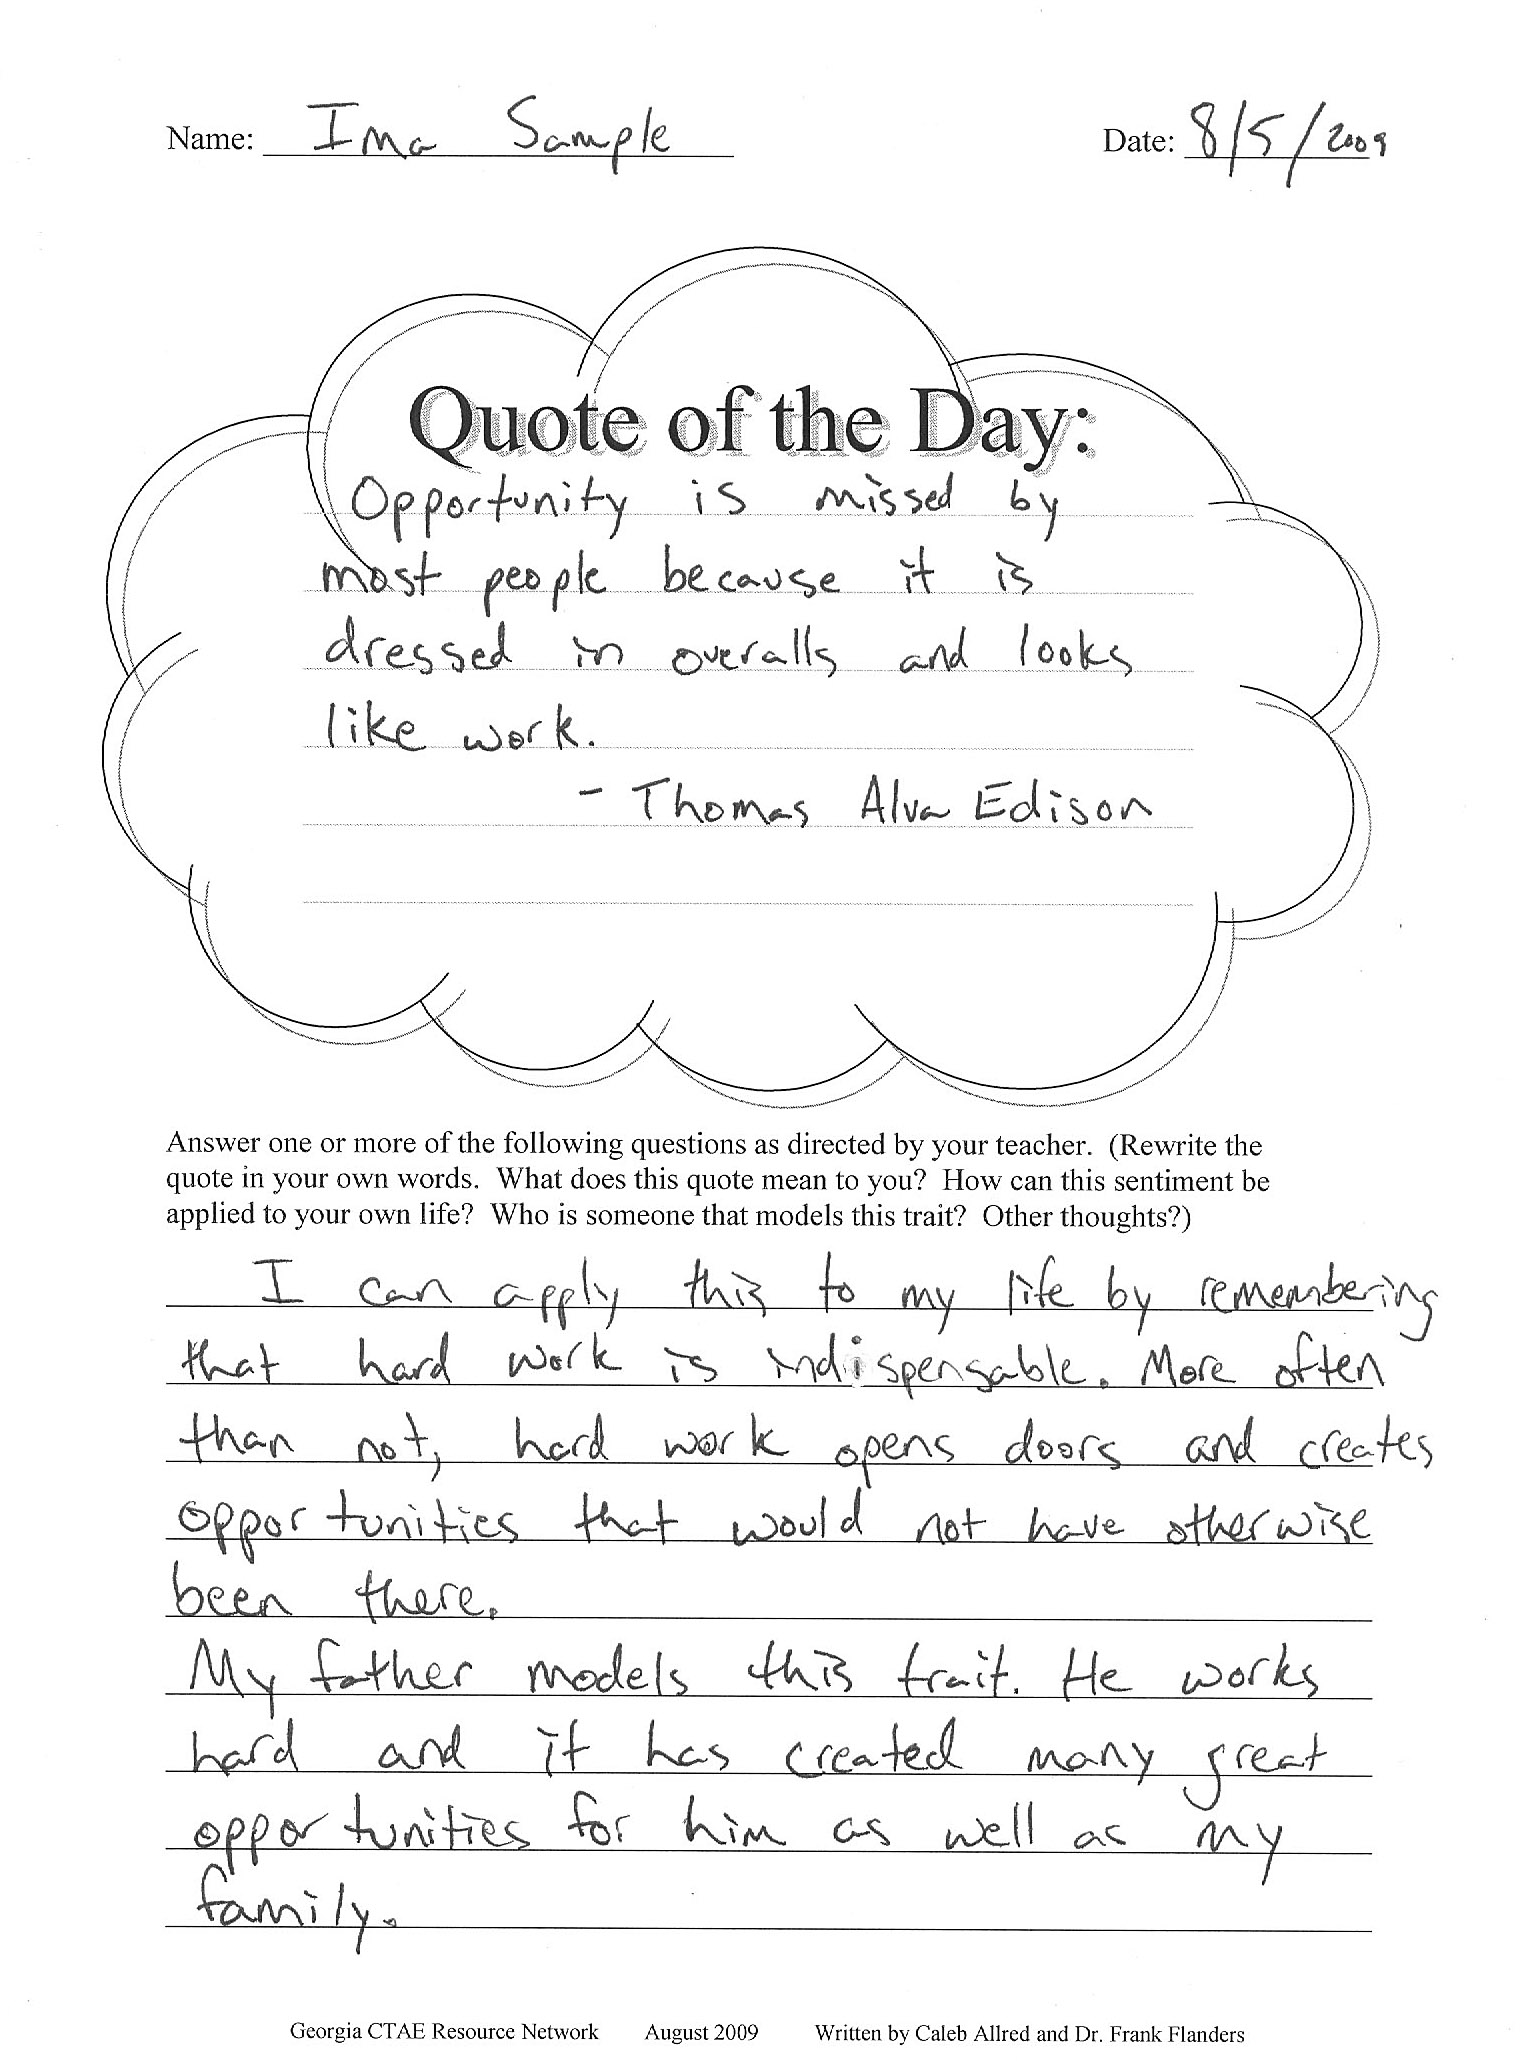 Name: Ima Sample Date: 8/5/2009
Quote of the Day:
Opportunity is missed by
most people because it is
dressed in overalls and looks
like work.
- Thomas Alva Edison
Answer one or more of the following questions as directed by your teacher. (Rewrite the
quote in your own words. What does this quote mean to you? How can this sentiment be
applied to your own life? Who is someone that models this trait? Other thoughts?)
I can apply this to my life by remembering
that hard work is indispensable. More often
than not, hard work opens doors and creates
opportunities that would not have otherwise
been there.
My father models this trait. He works
hard and it has created many great
opportunities for him as well as my
family.
Georgia CTAE Resource Network August 2009 Written by Caleb Allred and Dr. Frank Flanders